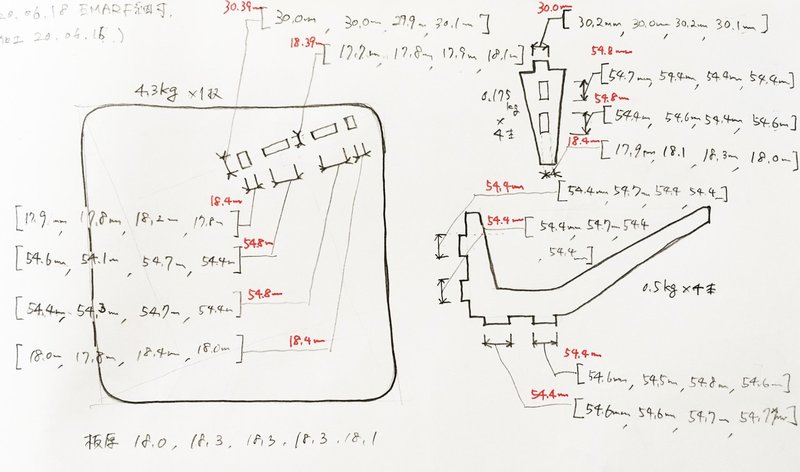 20.06.18 EMARF
20.06.16)
30.39m
[30.0mm, 30.0m, 29.9m, 30.1m]
30.0m
[30.2mm, 30.0m, 30.2m, 30.1m]
18.39m
[17.7m, 17.8m, 17.9m, 18.1m]
4.3kg ×1枚
54.8mm
[54.7mm, 54.4m, 54.4m, 54.4m]
0.175kg × 4本
54.8m
[54.4m, 54.6m, 54.4m, 54.6m]
18.4m
[17.9m, 18.1, 18.3m, 18.0m]
54.4m
[54.4m, 54.7m, 54.4, 54.4]
18.4m
[17.9m, 17.8m, 18.2m, 17.8m]
54.4m
[54.4m, 54.7m, 54.4, 54.4]
54.8m
[54.6m, 54.1m, 54.7m, 54.4m]
54.8m
[54.4m, 54.3m, 54.7m, 54.4m]
0.5kg×4本
18.4m
[18.0m, 17.8m, 18.4m, 18.0m]
54.4m
[54.6m, 54.5m, 54.8m, 54.6m]
54.4m
[54.6mm, 54.6m, 54.7m, 54.7m]
板厚 18.0, 18.3, 18.3, 18.3, 18.1